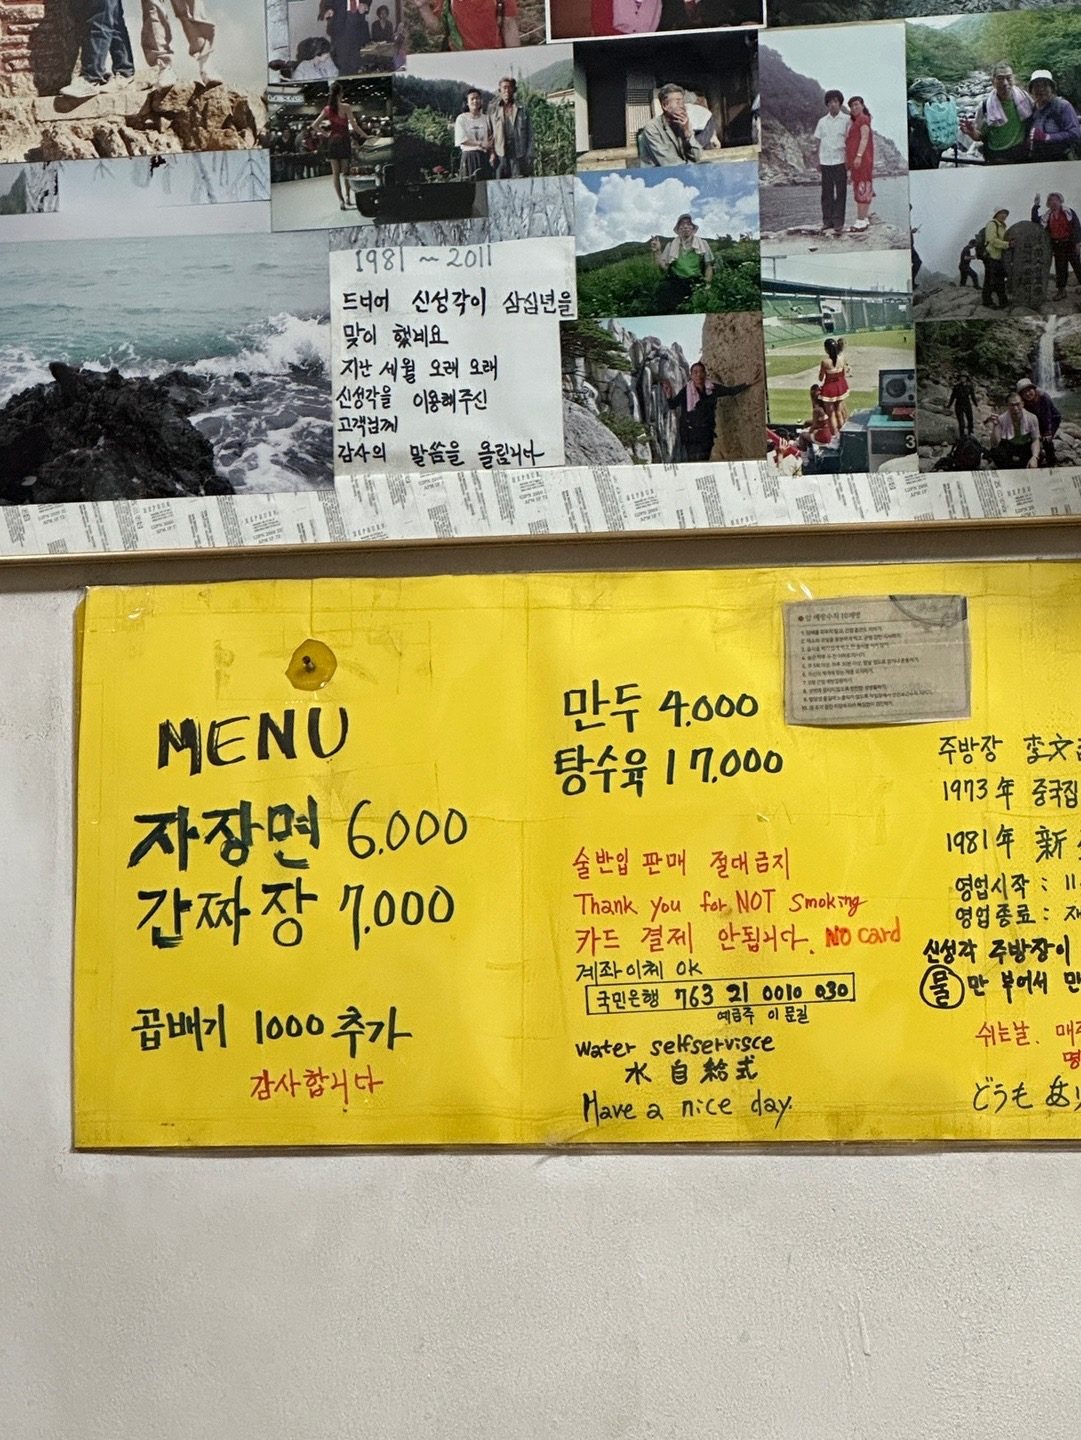 1981~2011
드디어 신성각이 삼십년을
맞이 했네요
지난 세월 오래 오래
신성각을 이용해주신
고객님께
감사의 말씀을 올립니다
MENU
자장면 6,000
간짜장 7,000
곱배기 1000 추가
감사합니다
만두 4,000
탕수육 17,000
술반입 판매 절대금지
Thank you for NOT smoking
카드 결제 안됩니다. NO card
계좌이체 OK
국민은행 763 21 0010 030
예금주 이문길
water selfservisce
水 自給式
Have a nice day.
암 예방수칙 10계명
주방장 李文
1973年 중국집
1981年 新
영업시작 : 11
영업종료 : 재
신성각 주방장이
물만 부어서 만
쉬는날. 매주
どうも あり
3